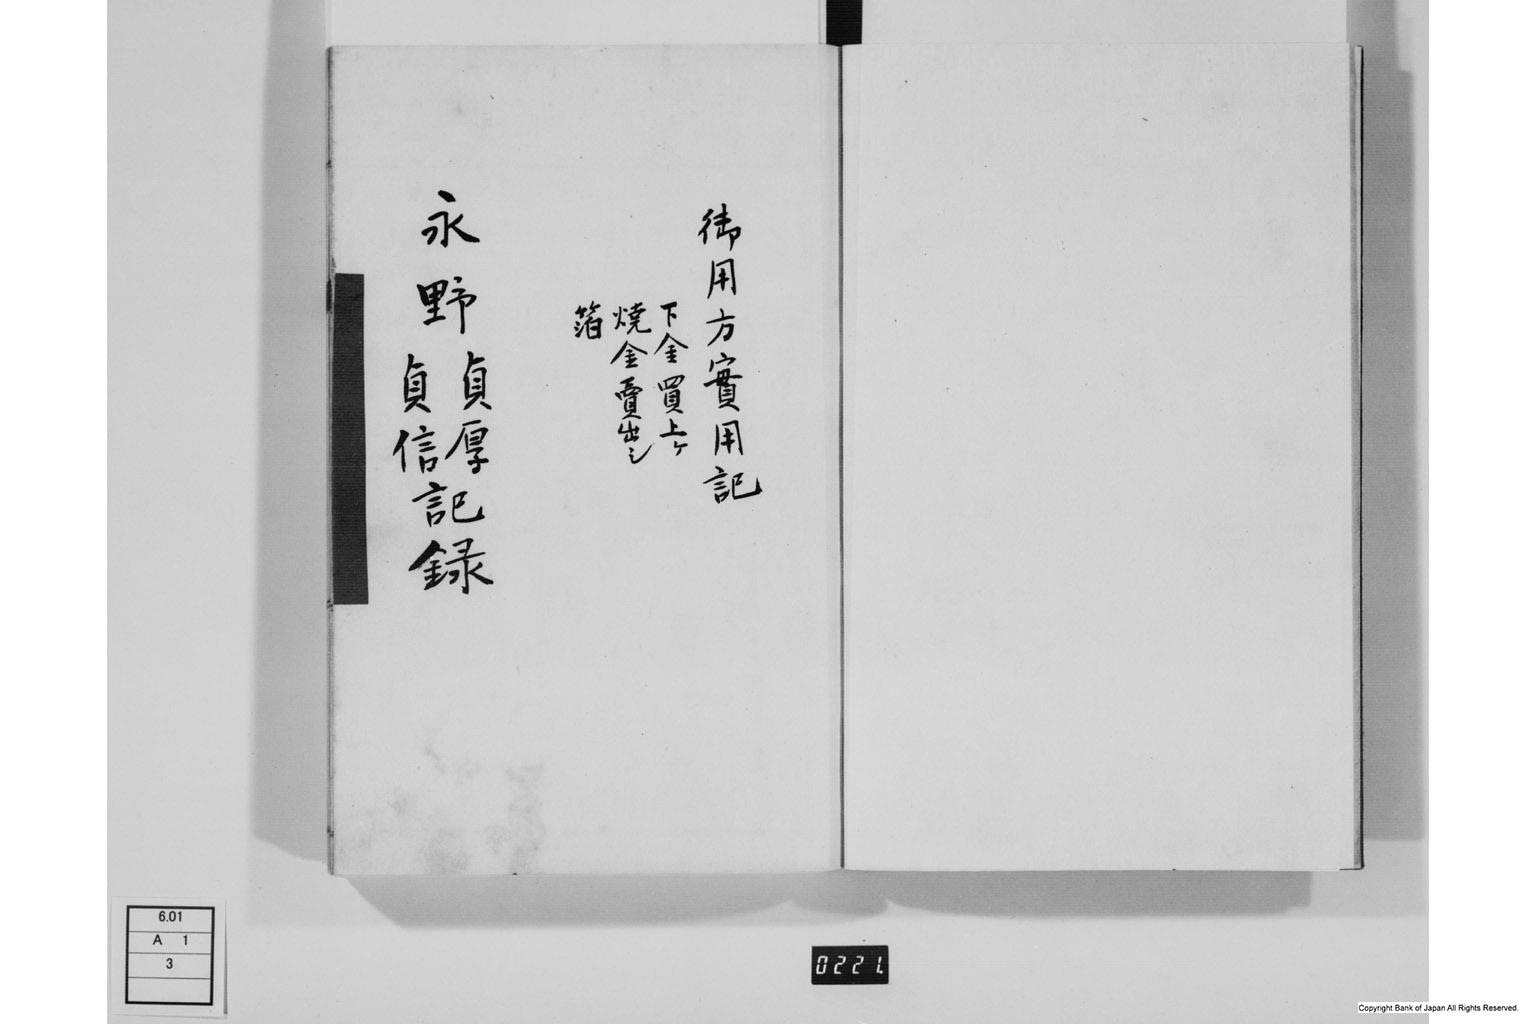 御用方實用記
下金買上ケ
焼金賣出シ
箔
永野
貞厚
貞信
記録
6.01
A 1
3
0221.
Copyright Bank of Japan All Rights Reserved.